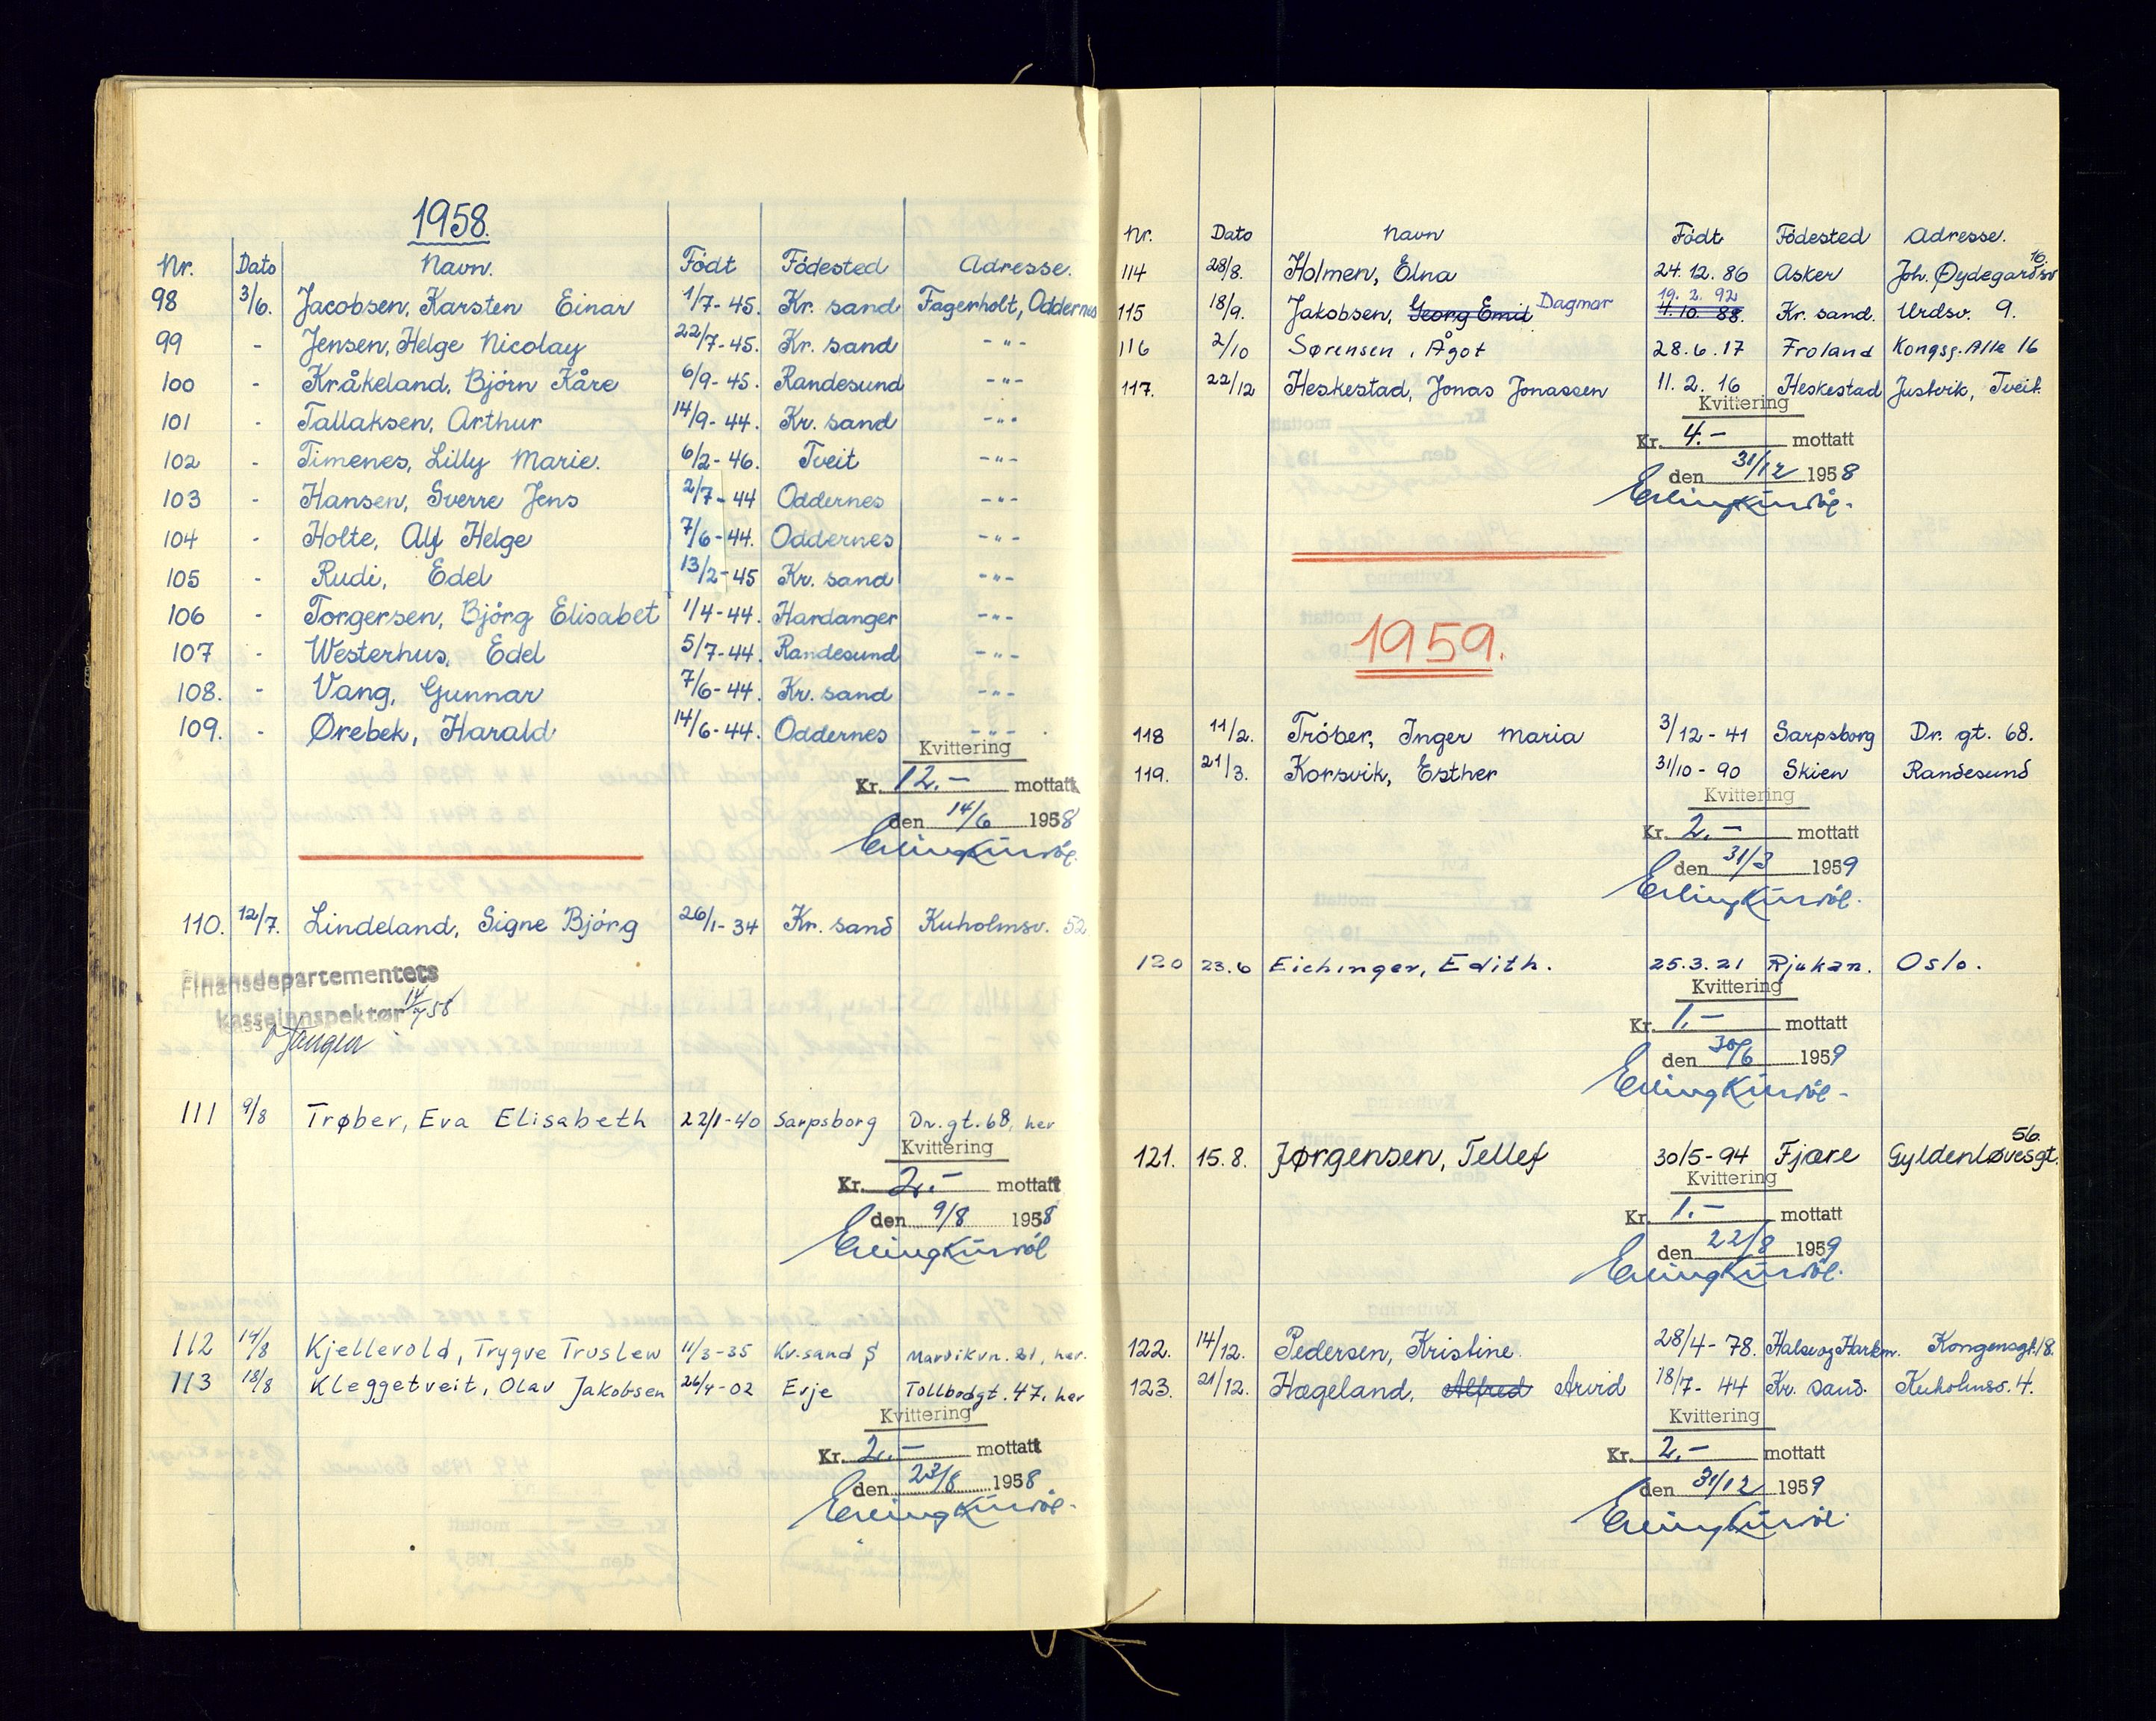 1958.
Nr. Dato Navn. Födt Födested Adresse.
98 3/6. Jacobsen, Karsten Einar 1/7-45. Kr. sand Fagerholt, Oddernes
99 - Jensen, Helge Nicolay 22/7-45. Kr. sand -"-
100 - Kråkeland, Björn Kåre 6/9-45. Randesund -"-
101 - Tallaksen, Arthur 14/9-44. Kr. sand -"-
102 - Timenes, Lilly Marie. 6/2-46. Tveit -"-
103 - Hansen, Sverre Jens 2/7-44 Oddernes -"-
104 - Holte, Alf Helge 7/6-44. Oddernes -"-
105 - Rudi, Edel 13/2-45 Kr. sand -"-
106 - Torgersen, Björg Elisabet 1/4-44. Hardanger -"-
107 - Westerhus, Edel 5/7-44. Randesund -"-
108. - Vang, Gunnar 7/6-44. Kr. sand -"-
109. - Ørebek, Harald 14/6-44. Oddernes -"-
Kvittering
Kr. 12.- mottatt
den 14/6 1958
110. 12/7. Lindeland, Signe Björg 26/1-34 Kr. sand Kuholmsv. 52
Finansdepartementets
kasseinnspektør 14/7 58
111 9/8 Trøber, Eva Elisabeth 22/1-40 Sarpsborg Dr. gt. 68, her
Kvittering
Kr. 2.- mottatt
den 9/8 1958
112 14/8 Kjellevold, Trygve Truslew 11/3-35 Kr. sand S Mardikvn. 21, her.
113 18/8 Kleggetveit, Olav Jakobsen 26/4-02 Evje Tollbodgt. 47, her
Kvittering
Kr. 2.- mottatt
den 23/8 1958
Nr. Dato Navn Födt Födested Adresse.
114 28/8. Holmen, Elna 24.12.86 Asker Joh. Øydegardsv 16.
115 18/9. Jakobsen, Georg Emil Dagmar 19.2.92 4.10.88. Kr. sand. Urdsv. 9.
116 2/10 Sørensen, Ågot 28.6.17 Froland Kongsg. Alle 16
117. 22/12 Heskestad, Jonas Jonassen 11.2.16 Heskestad Justvik, Tveit.
Kvittering
Kr. 4.- mottatt
den 31/12 1958
1959.
118 11/2. Tröber, Inger Maria 3/12-41 Sarpsborg Dr. gt. 68.
119. 21/3. Korsvik, Esther 31/10-90 Skien Randesund
Kvittering
Kr. 2.- mottatt
den 31/3 1959
120 23.6 Eichinger, Edith. 25.3.21 Rjukan. Oslo.
Kvittering
Kr. 1.- mottatt
den 30/6 1959
121. 15.8. Jørgensen, Tellef 30/5-94 Fjære Gyldenløvesgt. 56.
Kvittering
Kr. 1.- mottatt
den 22/8 1959
122. 14/12. Pedersen, Kristine. 28/4-78. Halse og Harkm. Kongensgt. 18.
123. 21/12. Hægeland, Alfred Arvid 18/7-44 Kr. sand. Kuholmsv. 4.
Kvittering
Kr. 2.- mottatt
den 31/12 1959